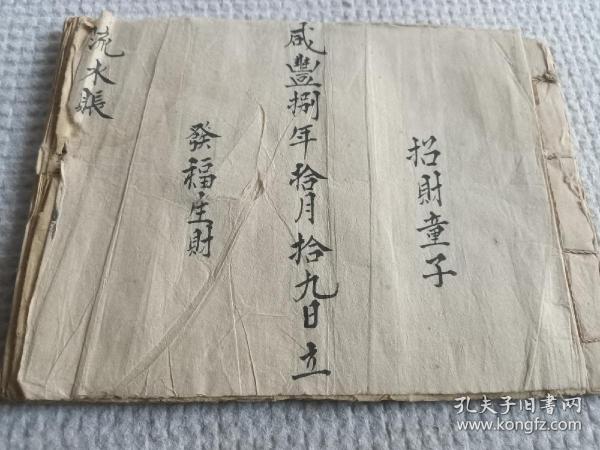 招財童子
咸豐捌年拾月拾九日立
發福生財
流水賬
孔夫子旧书网
www.kongfz.com